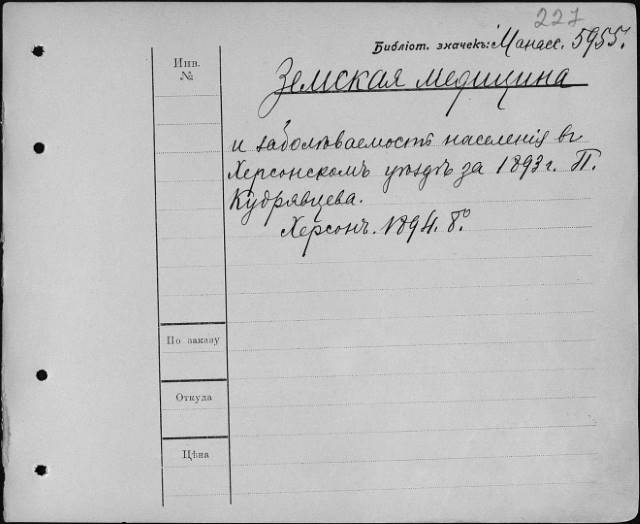 227
Библіот. значекъ: Манасс. 5955.
Инв.
№
Земская медицина
и заболѣваемость населенія въ
Херсонскомъ уѣздѣ за 1893 г. П.
Кудрявцева.
Херсонъ. 1894. 8°
По заказу
Откуда
Цѣна